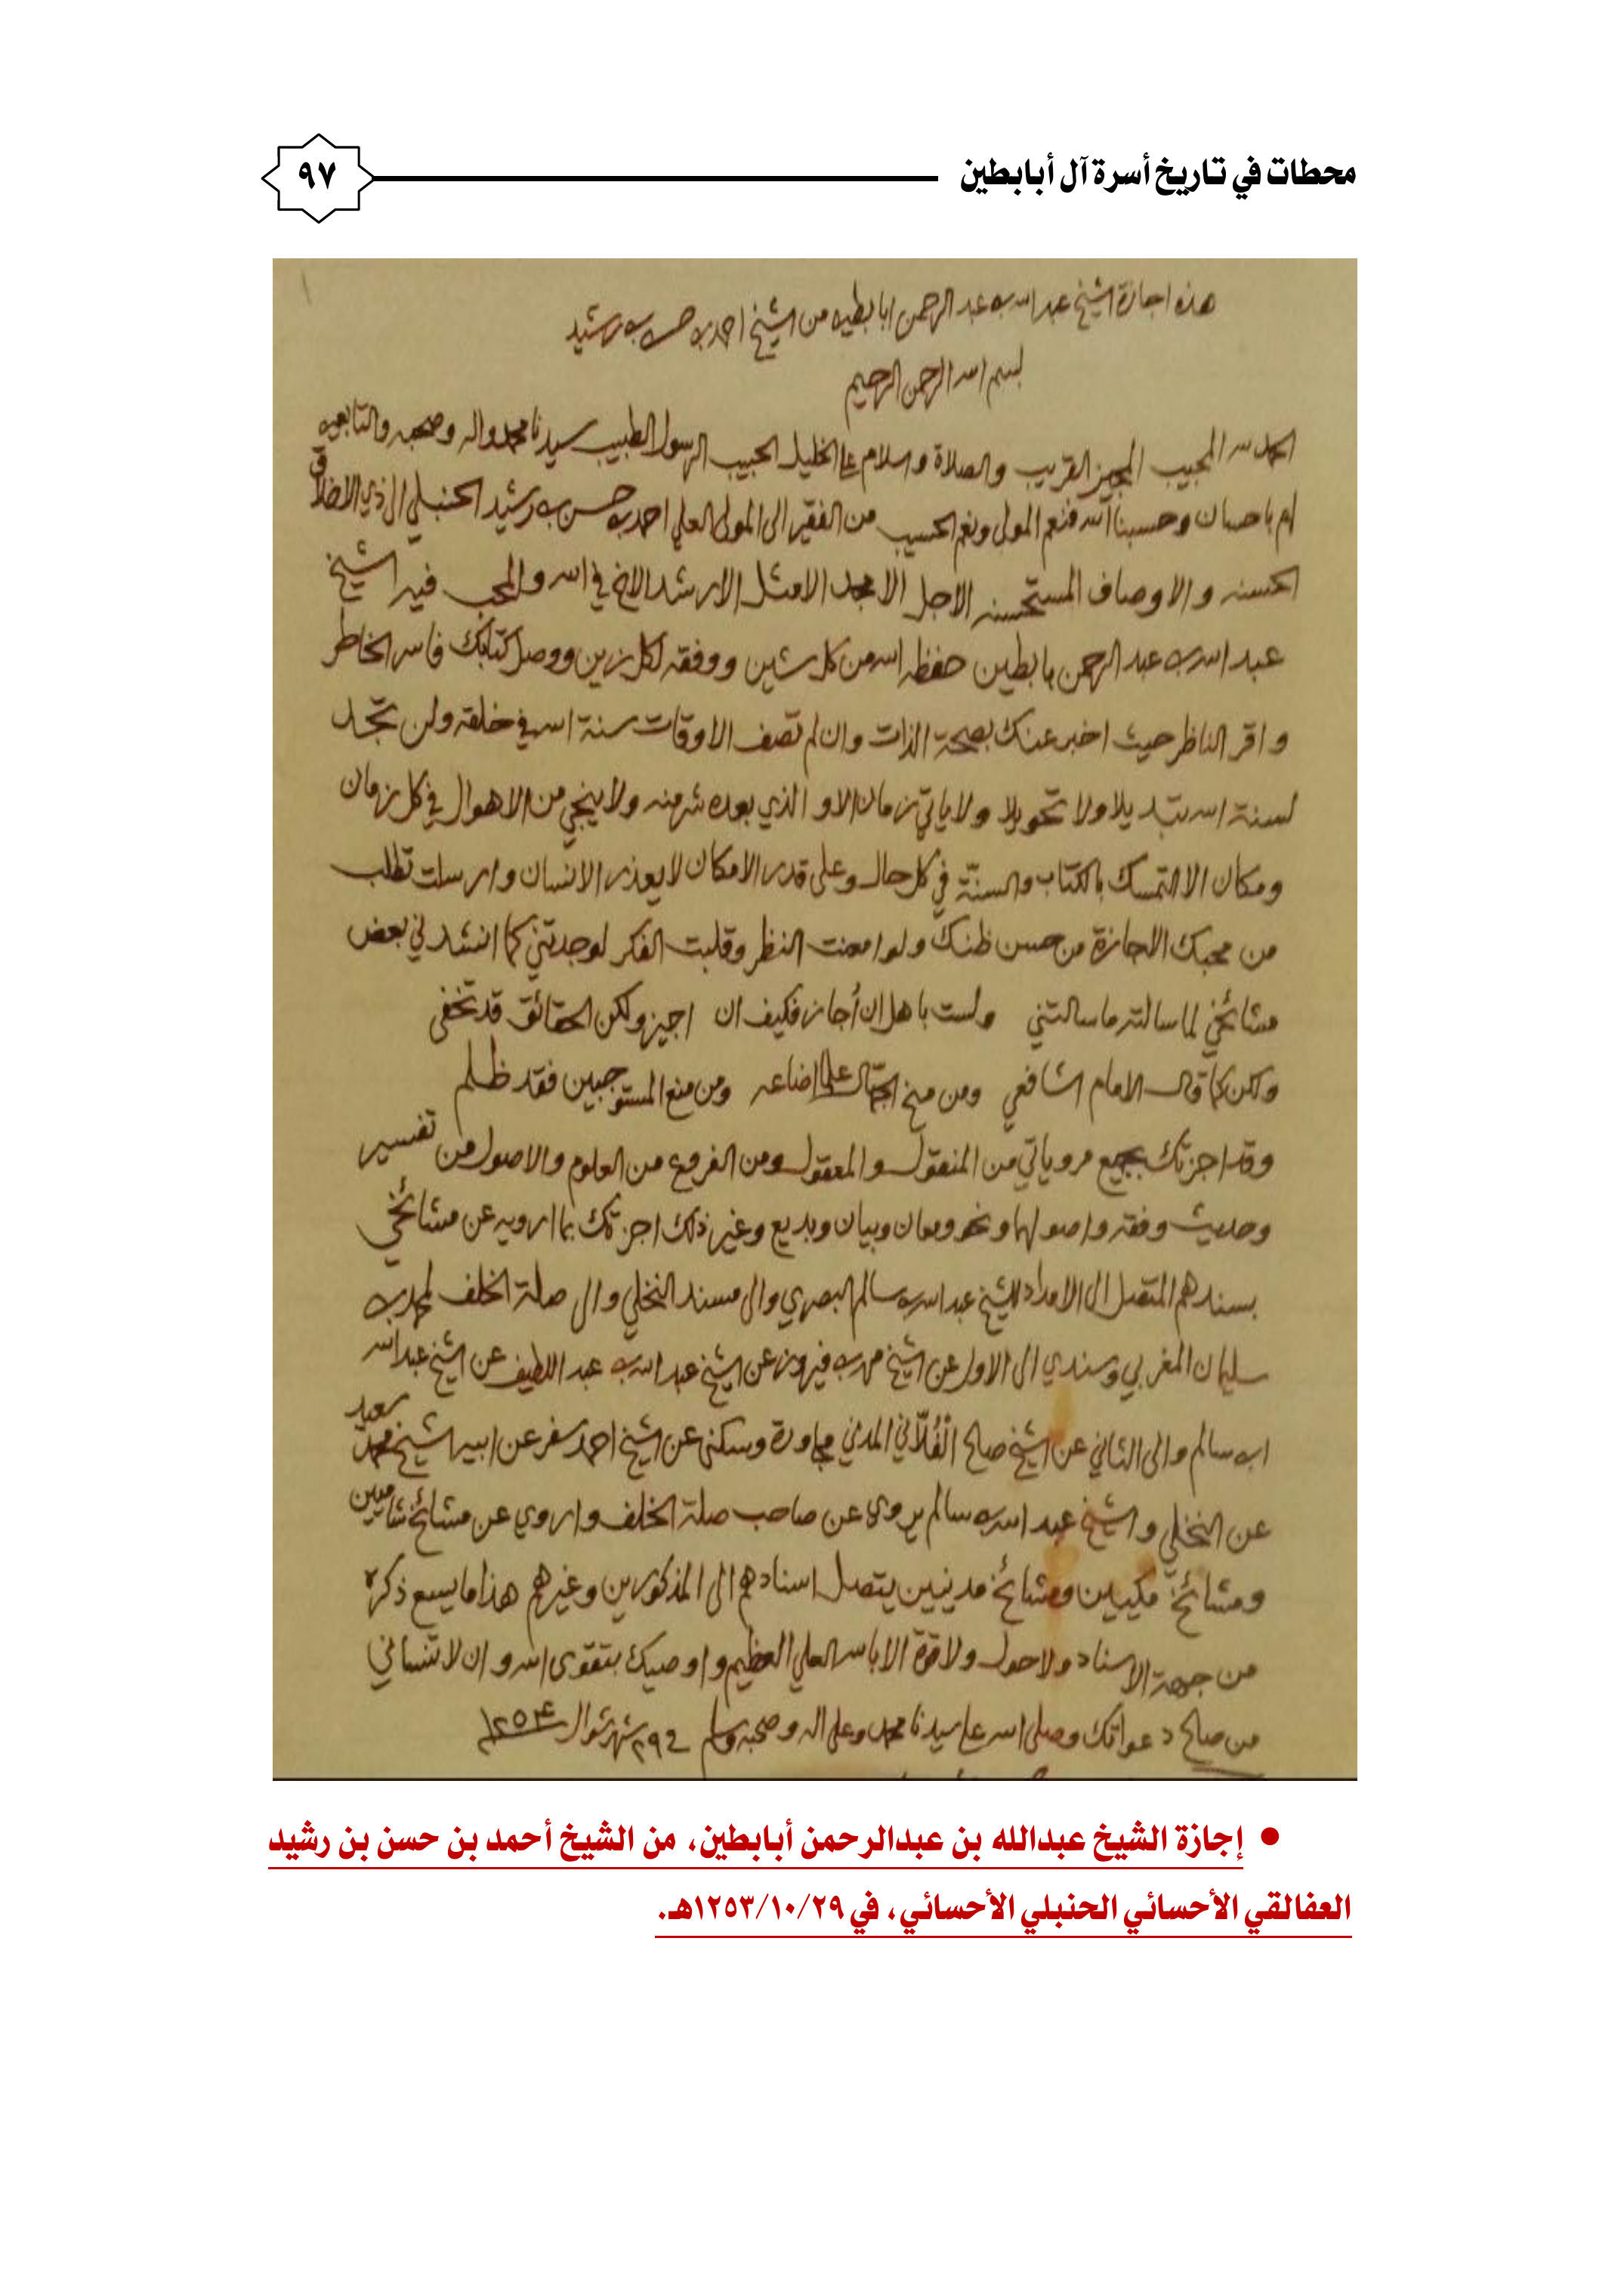 محطات في تاريخ أسرة آل أبابطين
٩٧
هذه اجازة الشيخ عبد الله بن عبد الرحمن ابا بطين من الشيخ احمد بن حسن بن رشيد
بسم الله الرحمن الرحيم
الحمد لله المجيب المجيز القريب والصلاة والسلام على الخليل الحبيب الرسول الطبيب سيدنا محمد واله وصحبه والتابعين
لهم باحسان وحسبنا الله فنعم المولى ونعم الحسيب من الفقير الى المولى العلي احمد بن حسن بن رشيد الحنبلي الى ذي الاخلاق
الحسنه والاوصاف المستحسنه الاجل الامجد الامثل الارشد الاخ في الله والمحب فيه الشيخ
عبد الله بن عبد الرحمن بابطين حفظه الله من كل شين ووفقه لكل زين ووصل كتابك فاسر الخاطر
واقر الناظر حيث اخبر عنك بصحة الذات وان لم تصف الاوقات سنة الله في خلقه ولن تجد
لسنة الله تبديلا ولا تحويلا ولا ياتي زمان الا والذي بعده شر منه ولا ينجي من الاهوال في كل زمان
ومكان الا التمسك بالكتاب والسنة في كل حال وعلى قدر الامكان لا يعذر الانسان وارسلت تطلب
من محبك الاجازة من حسن ظنك ولو امعنت النظر وقلبت الفكر لوجدتني كما انشدني بعض
مشائخي لما سالته ما سالتني ولست باهل ان أجاز فكيف ان اجيز ولكن الحقائق قد تخفى
ولكن كما قال الامام الشافعي ومن منح الجهّال علما اضاعه ومن منع المستوجبين فقد ظلم
وقد اجزتك بجميع مروياتي من المنقول والمعقول ومن الفروع من العلوم والاصول من تفسير
وحديث وفقه واصولها ونحو ومعان وبيان وبديع وغير ذلك اجزتك بما ارويه عن مشائخي
بسندهم المتصل الى الامداد للشيخ عبد الله بن سالم البصري والى مسند النخلي والى صلة الخلف لمحمد بن
سليمان المغربي وسندي الى الاول عن الشيخ محمد بن فيروز عن الشيخ عبد الله بن عبد اللطيف عن الشيخ عبد الله
ابن سالم والى الثاني عن الشيخ صالح الفُلّاني المدني مجاورة وسكنى عن الشيخ احمد سفر عن ابيه الشيخ محمد سعيد
عن النخلي والشيخ عبد الله بن سالم يروى عن صاحب صلة الخلف واروي عن مشائخ شاميين
ومشائخ مكيين ومشائخ مدنيين يتصل اسنادهم الى المذكورين وغيرهم هذا ما يسع ذكره
من جهة الاسناد ولا حول ولا قوة الا بالله العلي العظيم واوصيك بتقوى الله وان لا تنساني
من صالح دعواتك وصلى الله على سيدنا محمد وعلى اله وصحبه وسلم في ٢٩ شهر شوال
• إجازة الشيخ عبدالله بن عبدالرحمن أبابطين، من الشيخ أحمد بن حسن بن رشيد
العفالقي الأحسائي الحنبلي الأحسائي، في ١٢٥٣/١٠/٢٩هـ.